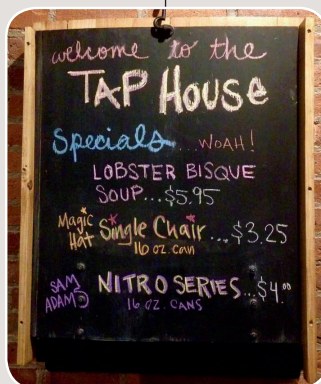 welcome to the
TAP House
Specials....WOAH!
LOBSTER BISQUE
SOUP...$5.95
Magic Hat Single Chair...$3.25
16 oz. can
SAM ADAMS NITRO SERIES...$4.00
16 OZ. CANS